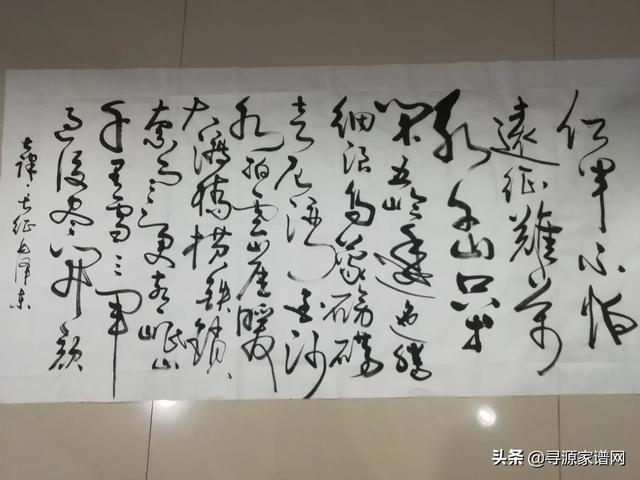 红军不怕
遠征難萬
水千山只等
閑五岭逶迤腾
细浪乌蒙磅礴
走泥丸金沙
水拍雲崖暖
大渡橋横铁锁
寒更喜岷山
千里雪三軍
过後尽開颜
七律·长征毛泽东
头条 @寻源家谱网